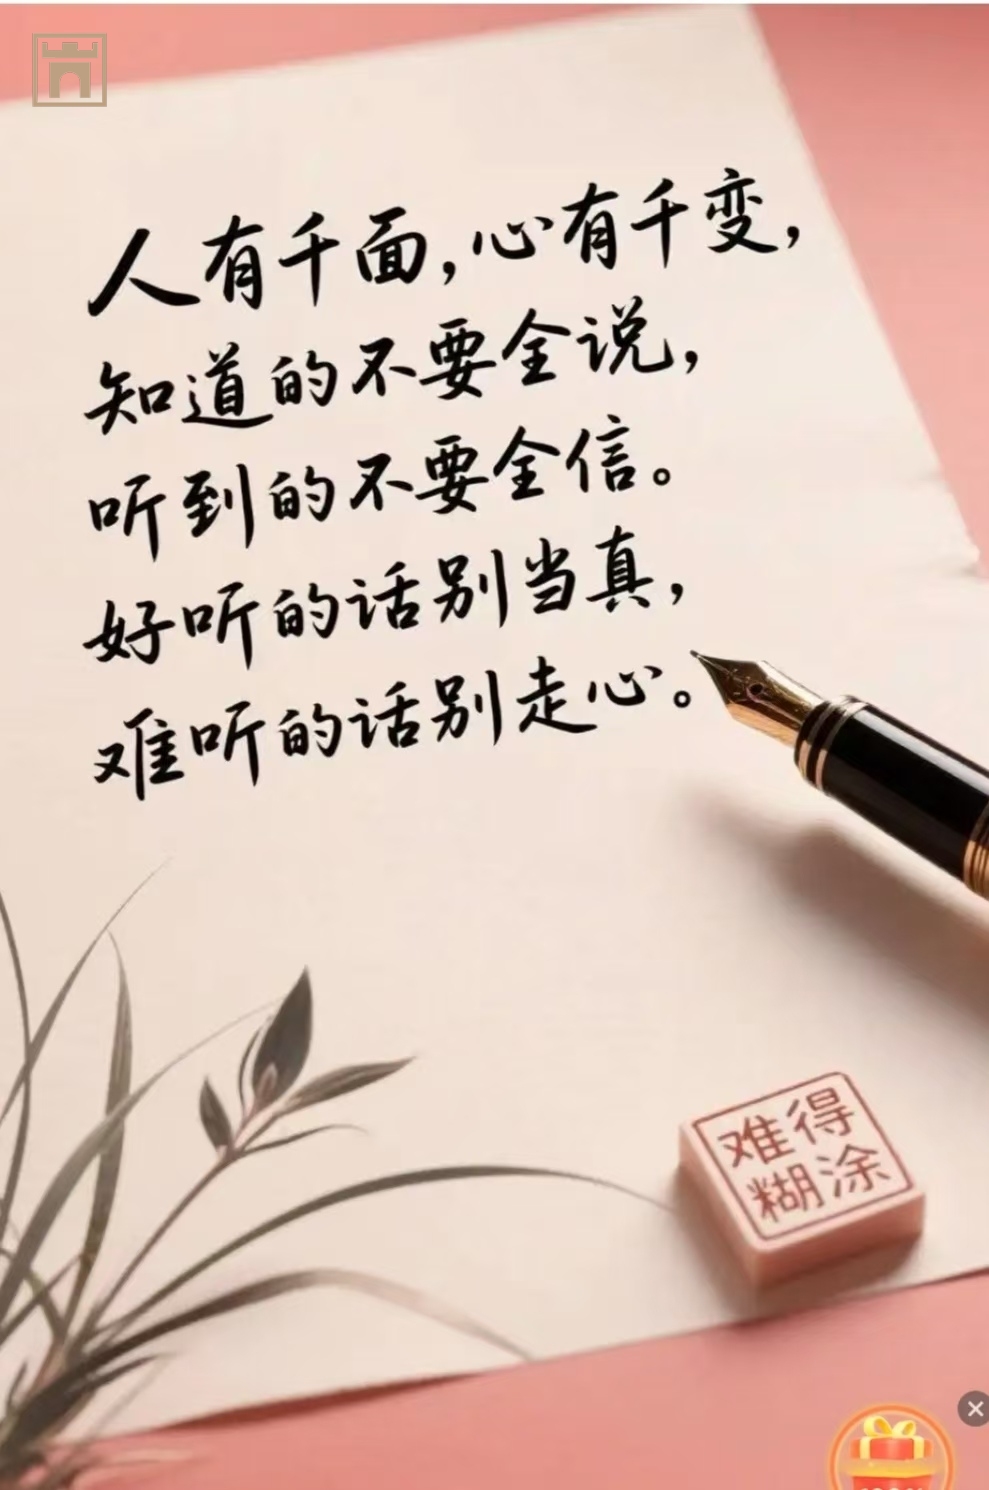 人有千面,心有千变,
知道的不要全说,
听到的不要全信。
好听的话别当真,
难听的话别走心。
难得
糊涂